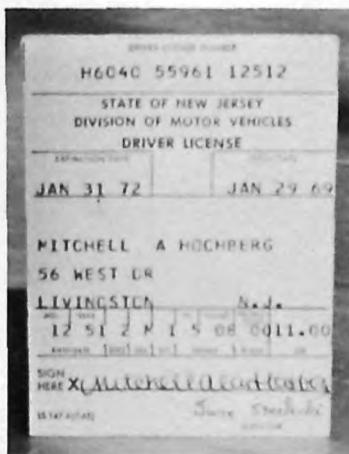 DRIVER LICENSE NUMBER
H6040 55961 12512
STATE OF NEW JERSEY
DIVISION OF MOTOR VEHICLES
DRIVER LICENSE
EXPIRATION DATE
JAN 31 72 JAN 29 69
MITCHELL A HOCHBERG
56 WEST DR
LIVINGSTON N.J.
12 51 2 M 1 5 08 0011.00
SIGN
HERE X Mitchell Alan Hochberg